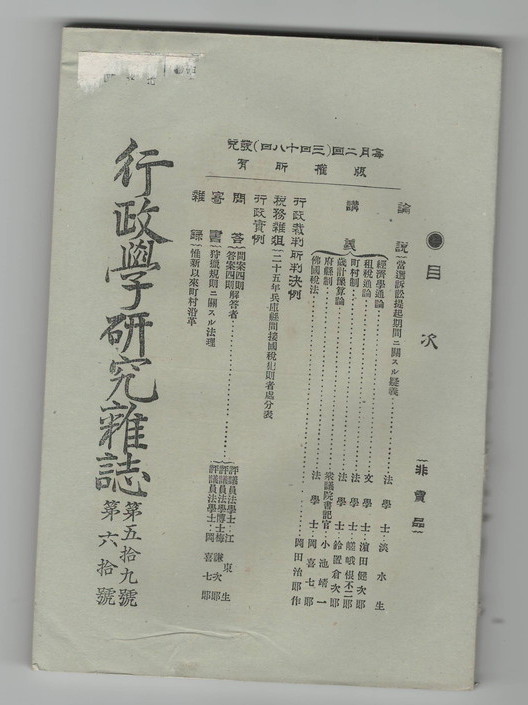 毎月二回(三回十八日)發兌
版權所有
●目次
〔非賣品〕
論說
當選訴訟提起期間ニ關スル疑義
法學士 淡水生
講義
經濟學通論
文學士 濱田健次郎
租稅通論
法學士 嵯峨根不二郎
町村制
法學士 鈴置倉次郎
歲計豫算論
衆議院書記官 小池靖一
府縣制
法學士 岡喜七郎
佛國稅法
岡田治郎作
行政裁判所判決例
稅務雜俎
二十五年兵庫縣間接國稅犯則者處分表
行政實例
問答
問案四則解答者
答案四則
評議員法學士 江東生
評議員法學博士 梅謙次郎
寄書
狩獵規則ニ關スル法理
評議員法學士 岡喜七郎
雜錄
維新以來町村沿革
行政學研究雜誌
第五拾九號
第六拾號